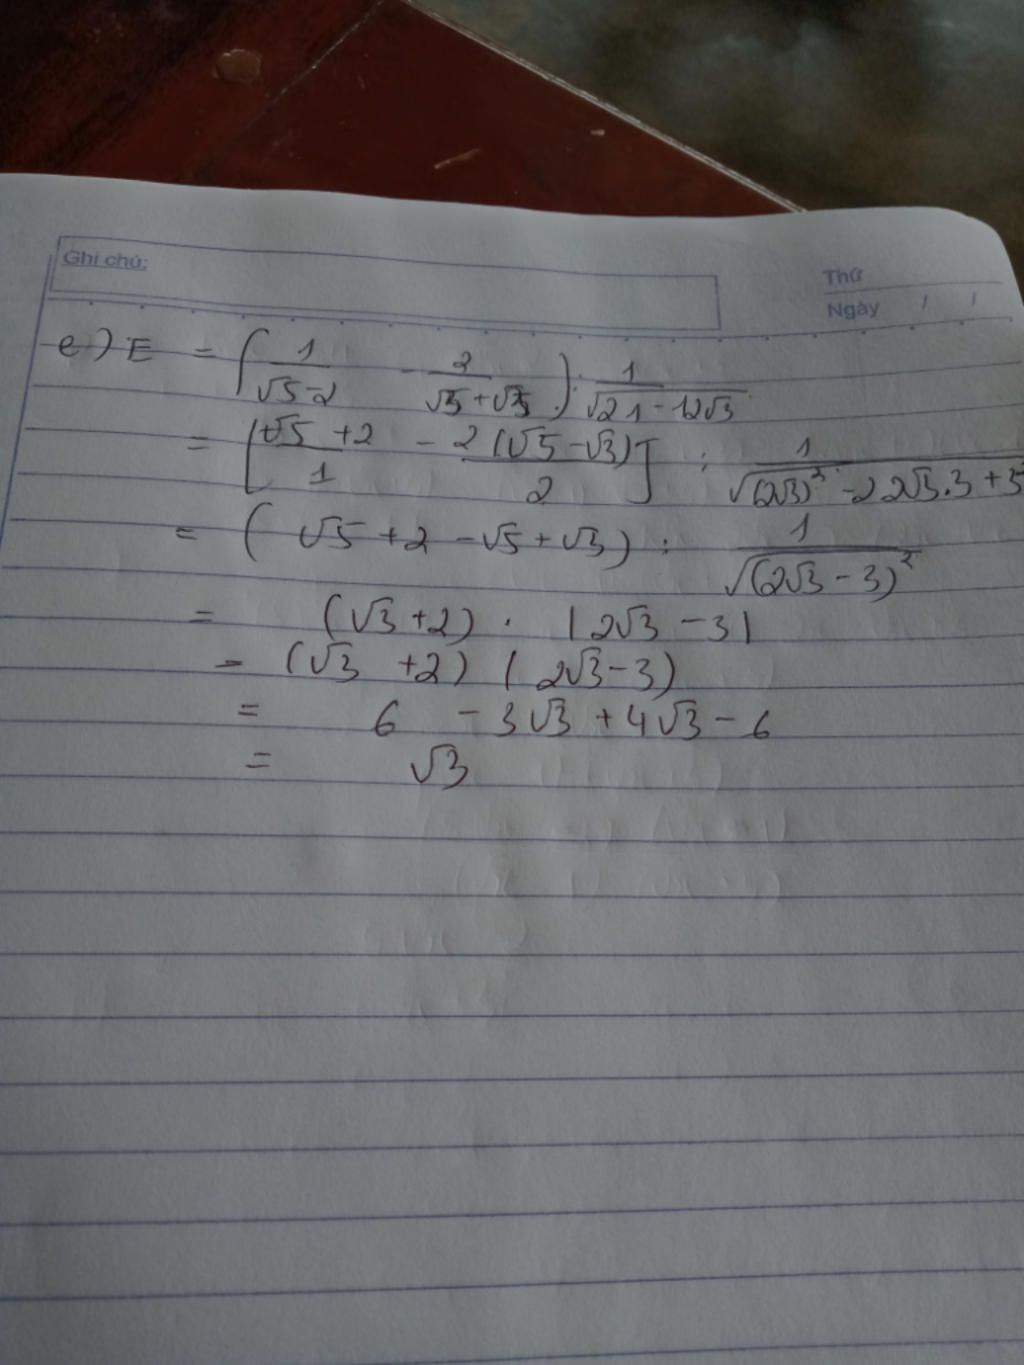 Ghi chú:
Thứ
Ngày / /
e) E = (1/(√5-2) - 2/(√5+√3)) : 1/√(21-12√3)
= [(√5+2)/1 - 2(√5-√3)/2] : 1/√((2√3)² - 2.2√3.3 + 3²)
= (√5+2-√5+√3) : 1/√((2√3-3)²)
= (√3+2) . |2√3-3|
= (√3+2)(2√3-3)
= 6 - 3√3 + 4√3 - 6
= √3